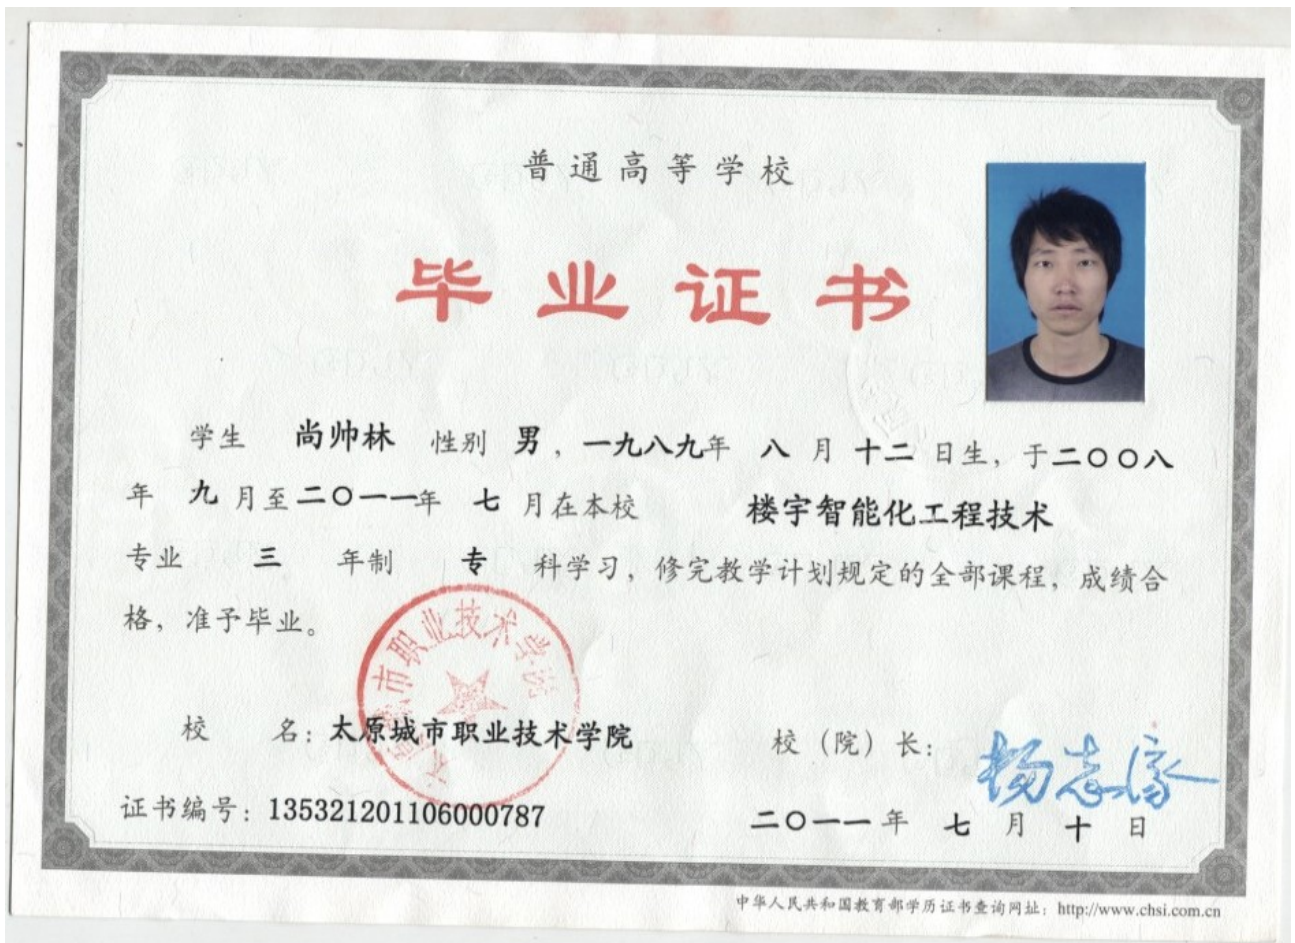 普通高等学校
毕业证书
学生 尚帅林 性别 男，一九八九年 八 月 十二 日生，于二〇〇八
年 九 月至二〇一一年 七 月在本校 楼宇智能化工程技术
专业 三 年制 专 科学习，修完教学计划规定的全部课程，成绩合
格，准予毕业。
太原城市职业技术学院
校 名：太原城市职业技术学院
校（院）长：
证书编号：135321201106000787
二〇一一年 七 月 十 日
中华人民共和国教育部学历证书查询网址：http://www.chsi.com.cn